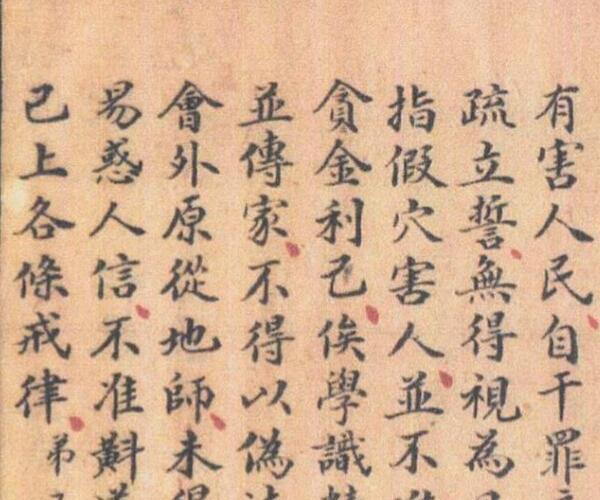 有害人民自干罪
疏立誓無得視為
指假穴害人並不
貪金利己俟學識
並傳家不得以偽
會外原從地師未得
易惑人信不准斟
已上各條戒律弟